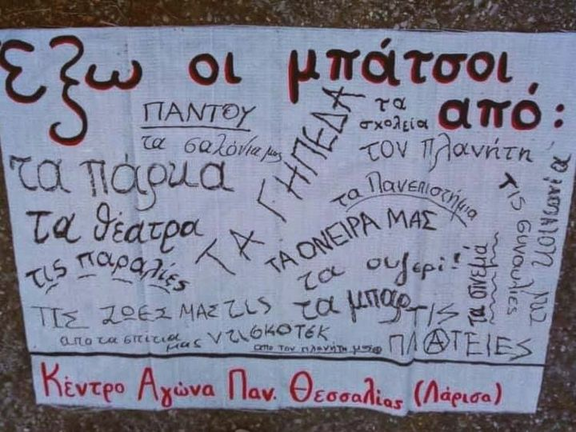 έξω οι μπάτσοι
από:
ΠΑΝΤΟΥ
τα σαλόνια μας
τα πάρκα
τα θέατρα
τις παραλίες
ΤΑ ΓΗΠΕΔΑ
τα σχολεία
τον πλανήτη
τα Πανεπιστήμια
ΤΑ ΟΝΕΙΡΑ ΜΑΣ
τα ουζερί!
τα μπαρ
τα σινεμά
τις συναυλίες
ΤΙΣ ΖΩΕΣ ΜΑΣ
τις ντισκοτέκ
από τα σπίτια μας
από τον πλανήτη μας
ΤΙΣ ΠΛΑΤΕΙΕΣ
Κέντρο Αγώνα Παν. Θεσσαλίας (Λάρισα)